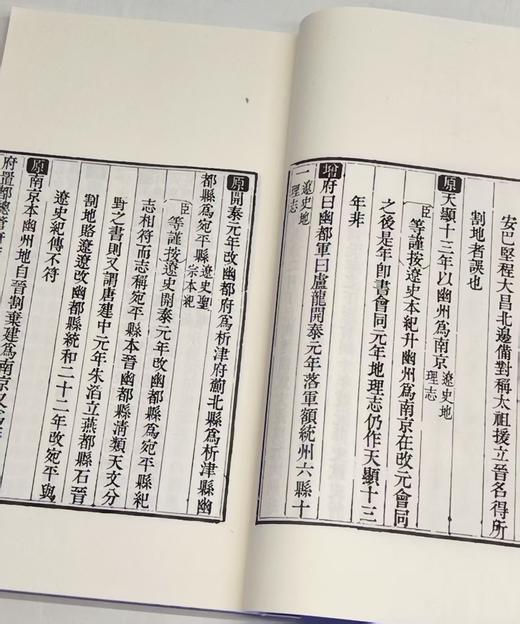 安巴堅程大昌北邊備對稱太祖援立晉名得所
割地者誤也
原天顯十三年以幽州爲南京遼史地理志
臣等謹按遼史本紀升幽州爲南京在改元會同
之後是年卽書會同元年地理志仍作天顯十三
年非
增府曰幽都軍曰盧龍開泰元年落軍額統州六縣十
一遼史地理志
原開泰元年改幽都府爲析津府薊北縣爲析津縣幽
都縣爲宛平縣遼史聖宗本紀
臣等謹按遼史開泰元年改幽都縣爲宛平縣紀
志相符而志稱宛平縣本晉幽都縣清類天文分
野之書則又謂唐建中元年朱滔立燕都縣石晉
割地賂遼遼改幽都縣統和二十二年改宛平與
遼史紀傳不符
原南京本幽州地自晉割棄建爲南京又
府置都總管府